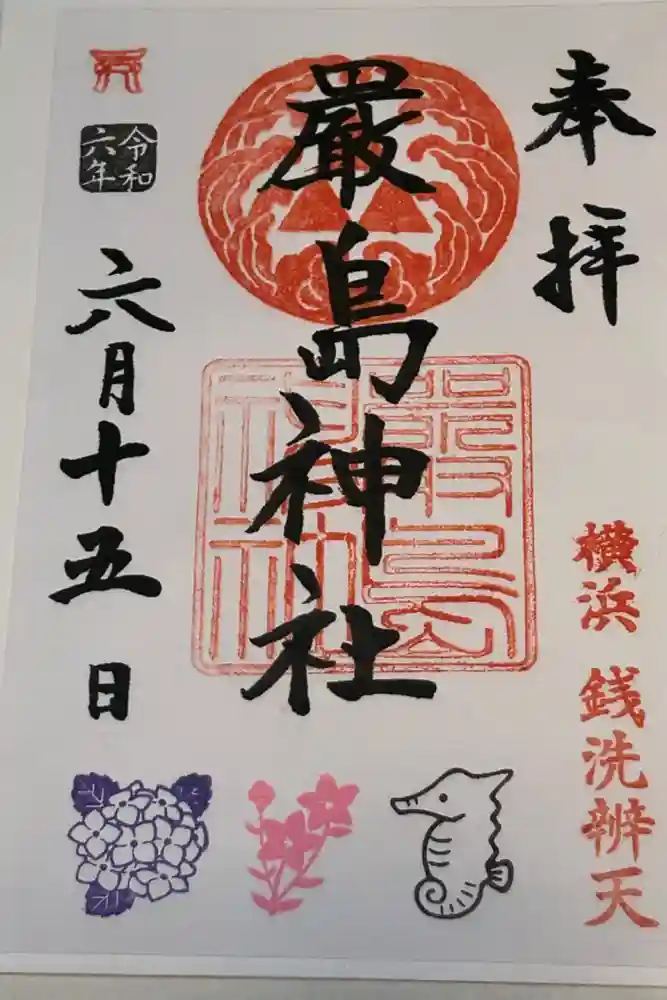 奉拝
横浜 銭洗辨天
嚴島神社
嚴島
神社
令和
六年
六月十五日